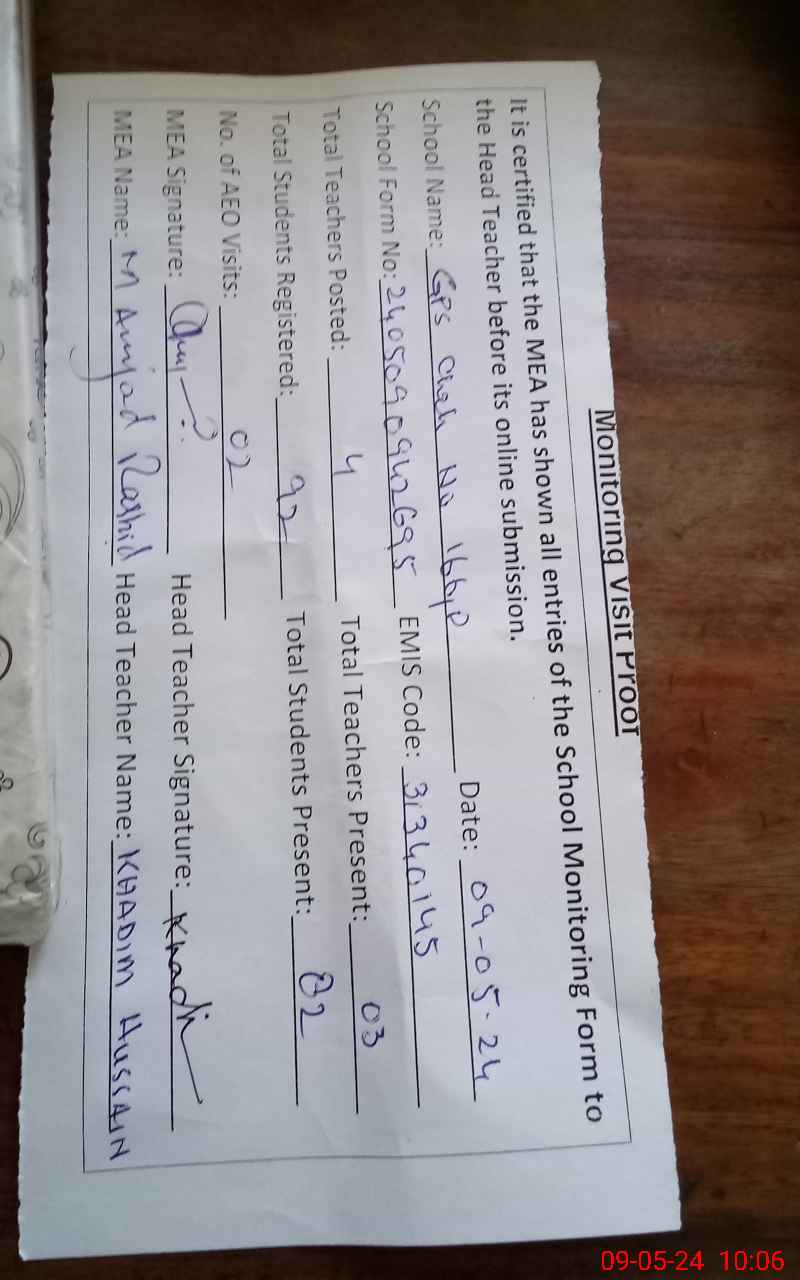 Monitoring Visit Proof
It is certified that the MEA has shown all entries of the School Monitoring Form to
the Head Teacher before its online submission.
School Name: GPS Chak No 166/P Date: 09-05-24
School Form No: 2405090942695 EMIS Code: 31340145
Total Teachers Posted: 4 Total Teachers Present: 03
Total Students Registered: 92 Total Students Present: 82
No. of AEO Visits: 02
MEA Signature: Head Teacher Signature: Khadi
MEA Name: M Amjad Rashid Head Teacher Name: KHADIM HUSSAIN
09-05-24 10:06